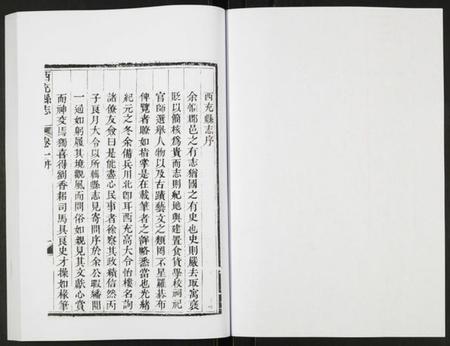 西充縣志序
余惟郡邑之有志猶國之有史也史則嚴去取寓褒
貶以簡核爲貴而志則紀地與建置食貨學校祠祀
官師選舉人物以及古蹟藝文之類罔不星羅棊布
俾覽者瞭如指掌是在載筆者之詳略悉當也光緒
紀元之冬余備兵川北卽耳西充高大令怡樓名詢
諸僚友僉曰是能盡心民事者徐察其政績信然丙
子良月大令以所輯縣志見寄問序於余公暇繙閱
一過如躬履其境觀風而問俗如親見其文獻心賞
而神交焉獨喜得劉香耜司馬具良史才操如椽筆
西充縣志
卷一序
一